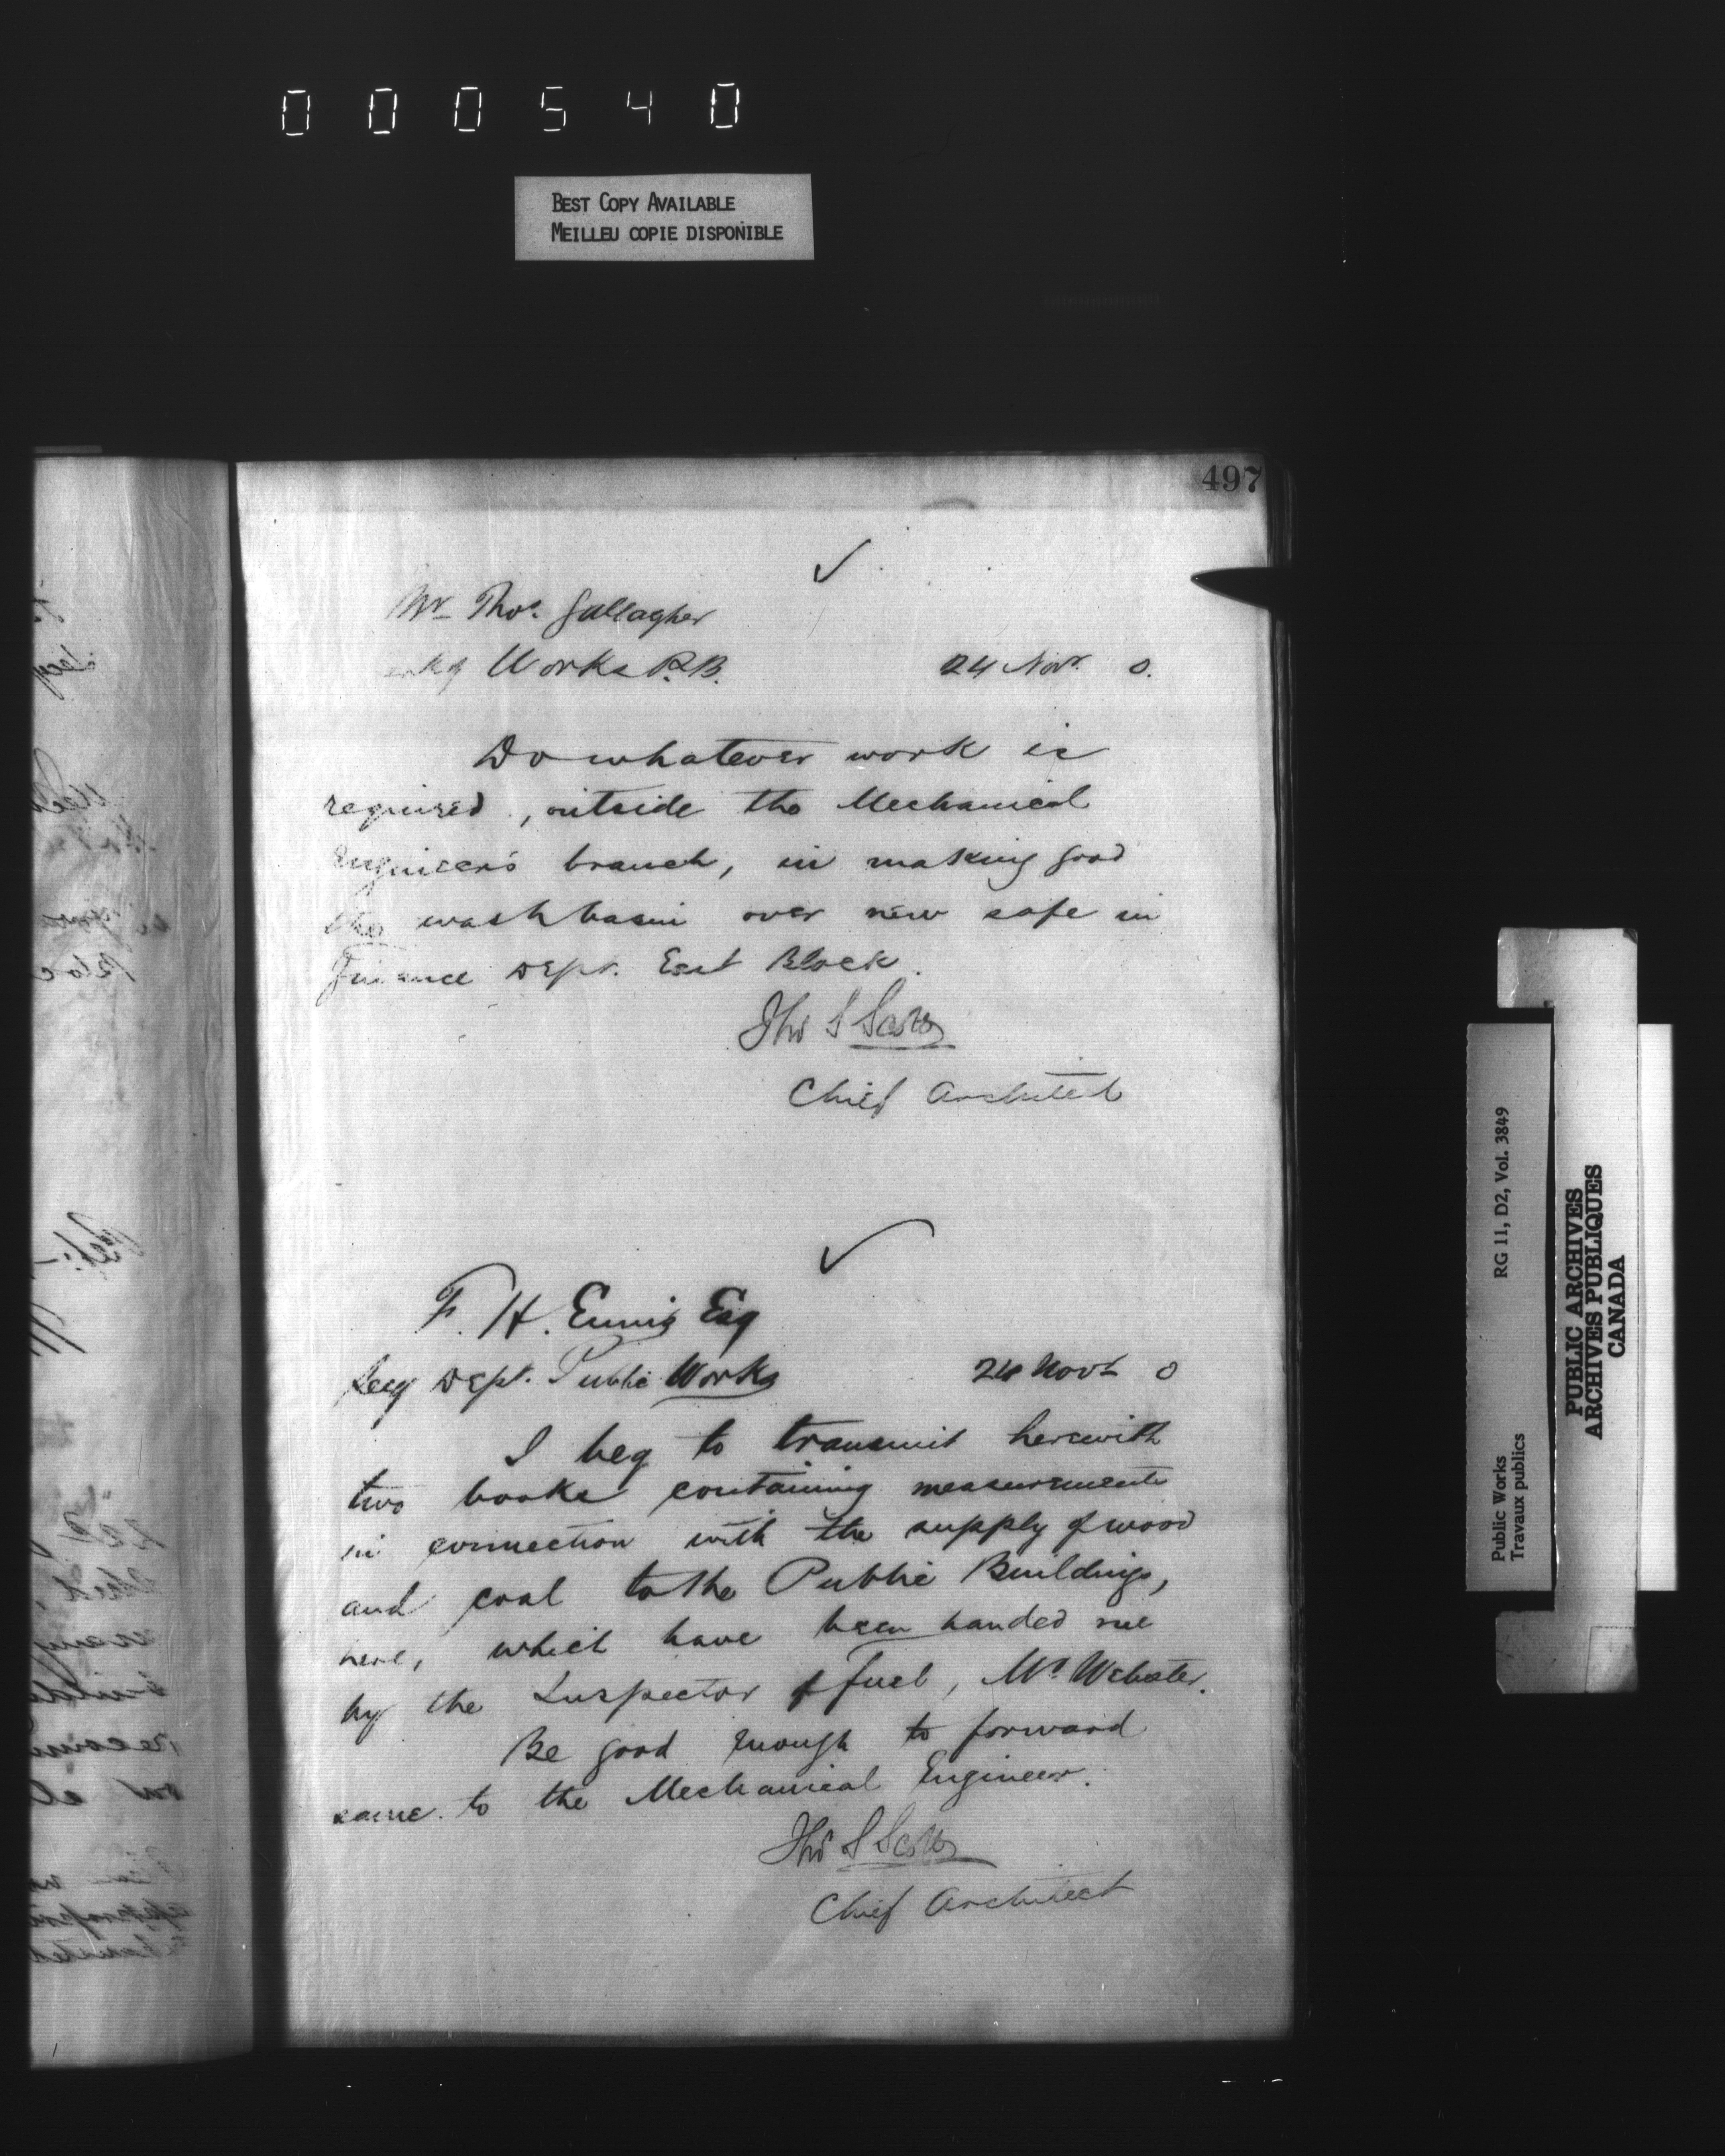 000540
BEST COPY AVAILABLE
MEILLEU COPIE DISPONIBLE
497
Mr Thos. Gallagher
Works P.B. 24 Novr. 0.
Do whatever work is
required, outside the Mechanical
Engineer's branch, in making good
the wash basin over new safe in
Finance Dept. East Block.
Thos S Scott
Chief Architect
F. H. Ennis Esq
Secy Dept. Public Works 24 Novr 0
I beg to transmit herewith
two books containing measurements
in connection with the supply of wood
and coal to the Public Buildings,
here, which have been handed me
by the Inspector of fuel, Mr. Webster.
Be good enough to forward
same to the Mechanical Engineer.
Thos S Scott
Chief Architect
Public Works RG 11, D2, Vol. 3849
Travaux publics
PUBLIC ARCHIVES
ARCHIVES PUBLIQUES
CANADA